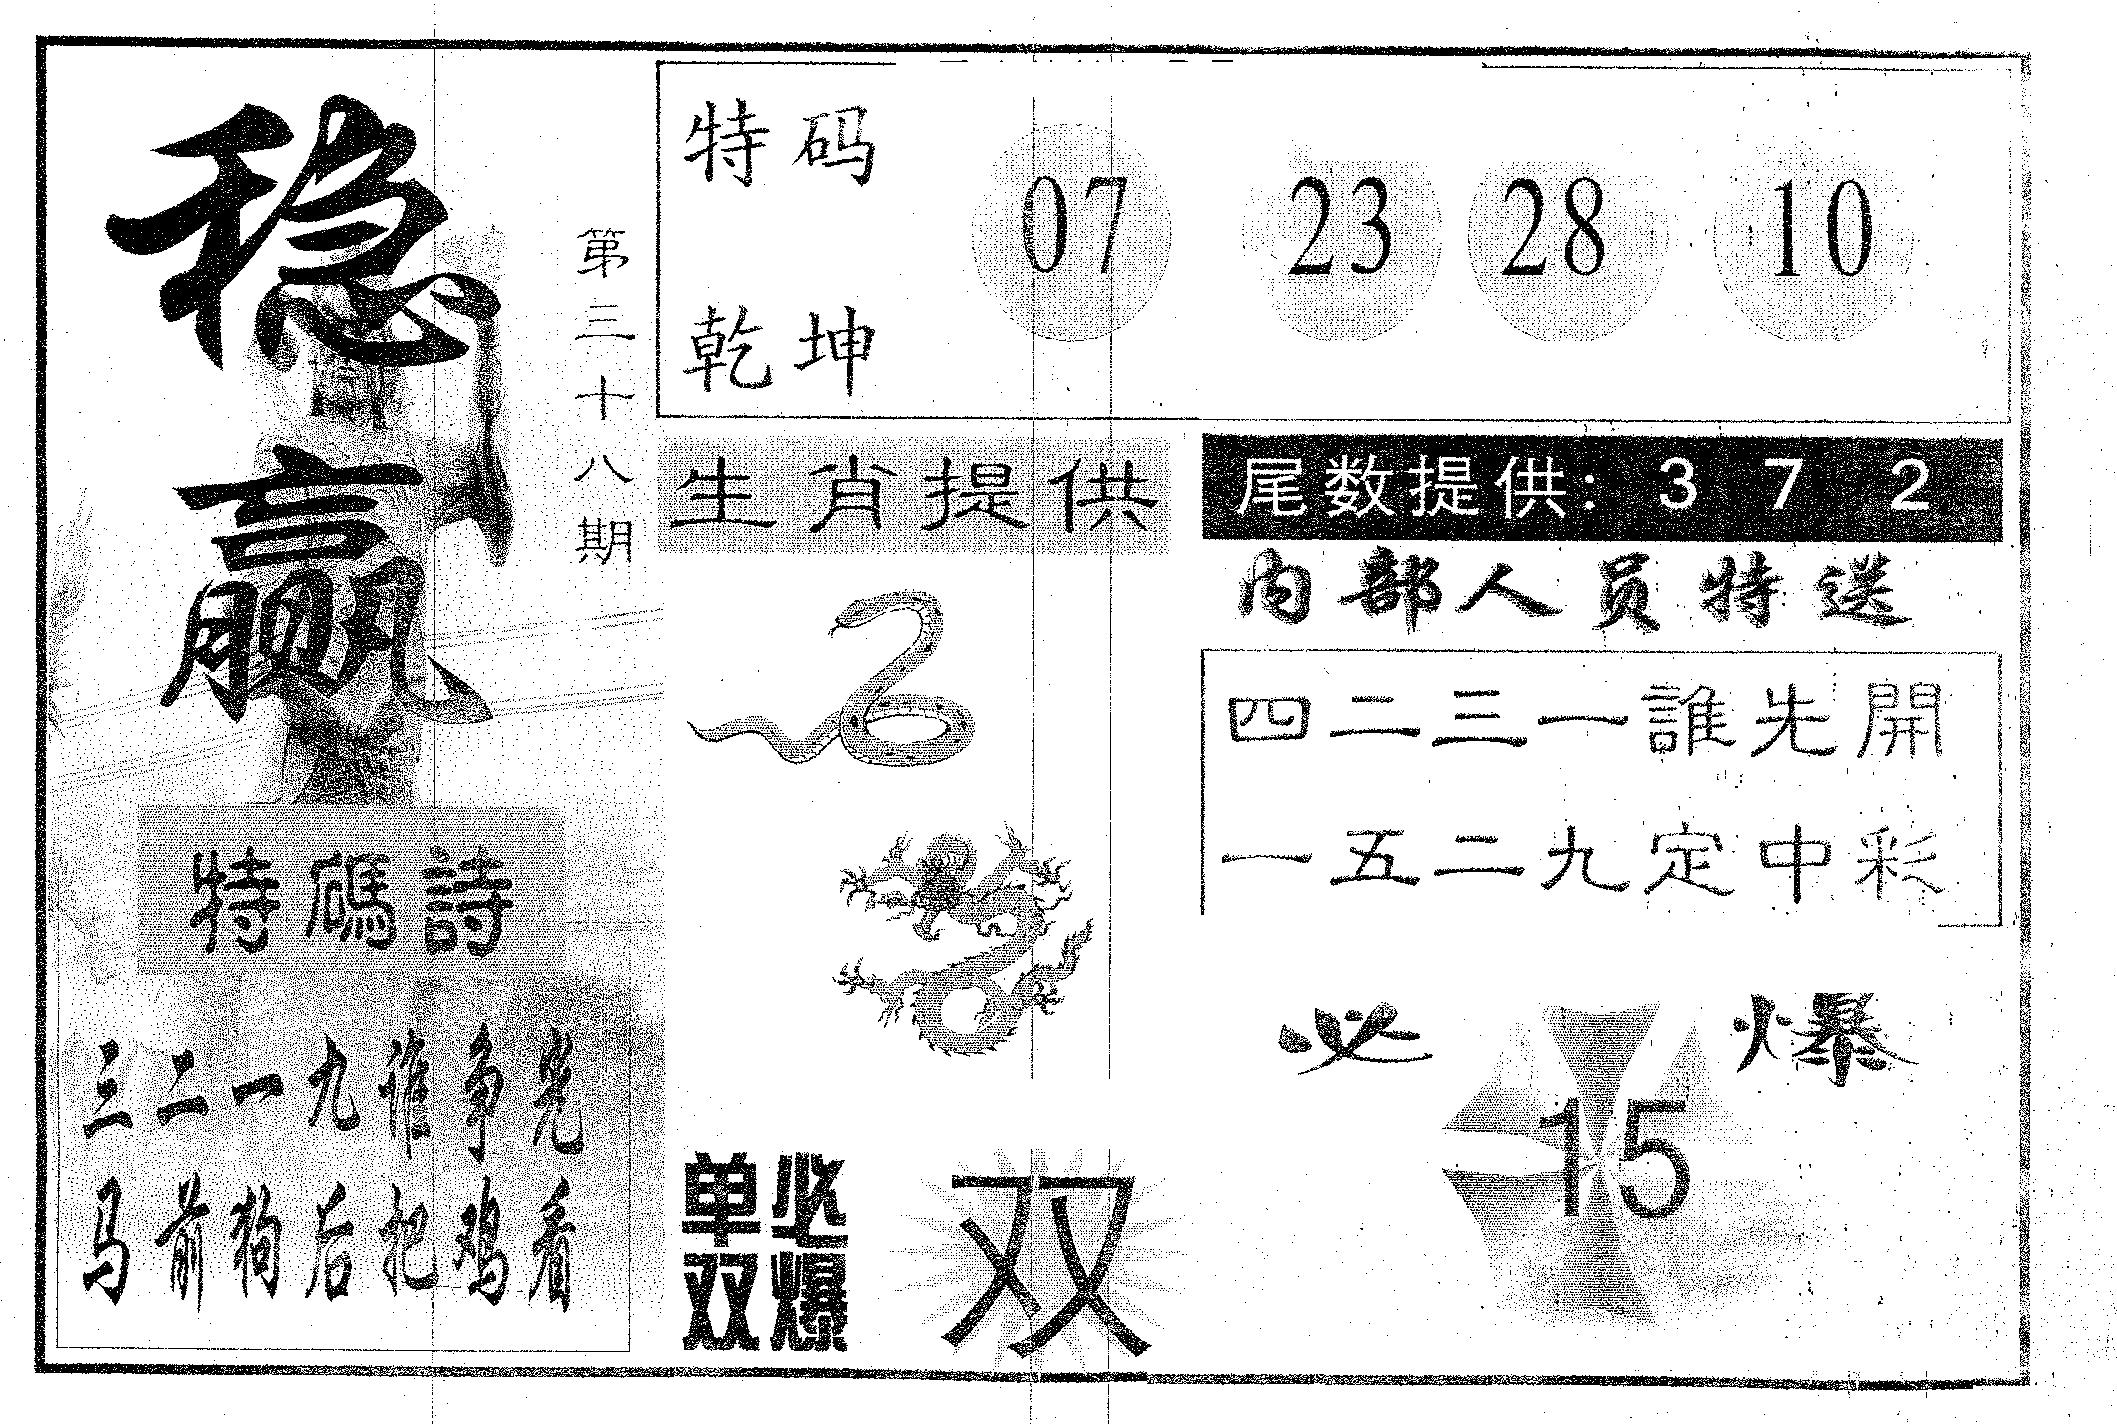 稳赢
第三十八期
特码
乾坤
07 23 28 10
生肖提供
尾数提供: 3 7 2
内部人员特送
四二三一誰先開
一五二九定中彩
特碼詩
三二一九谁争先
马前狗后把鸡看
单双
必爆
双
必爆
15